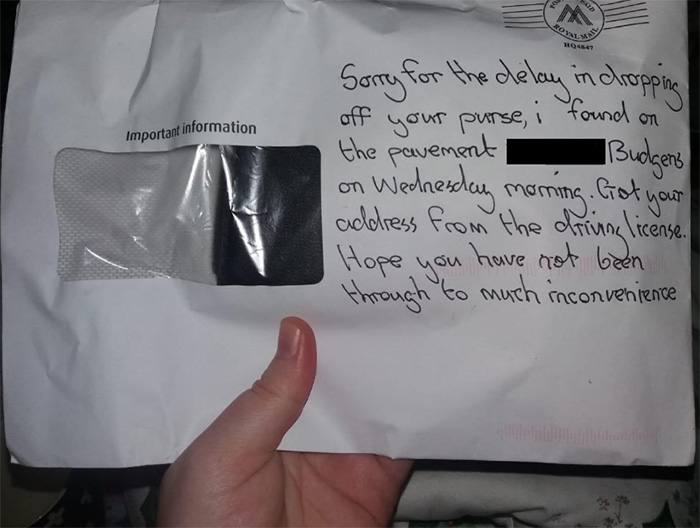 ROYAL MAIL
HQ4647
Important information
Sorry for the delay in dropping
off your purse, i found on
the pavement Budgens
on Wednesday morning. Got your
address from the driving license.
Hope you have not been
through to much inconvenience